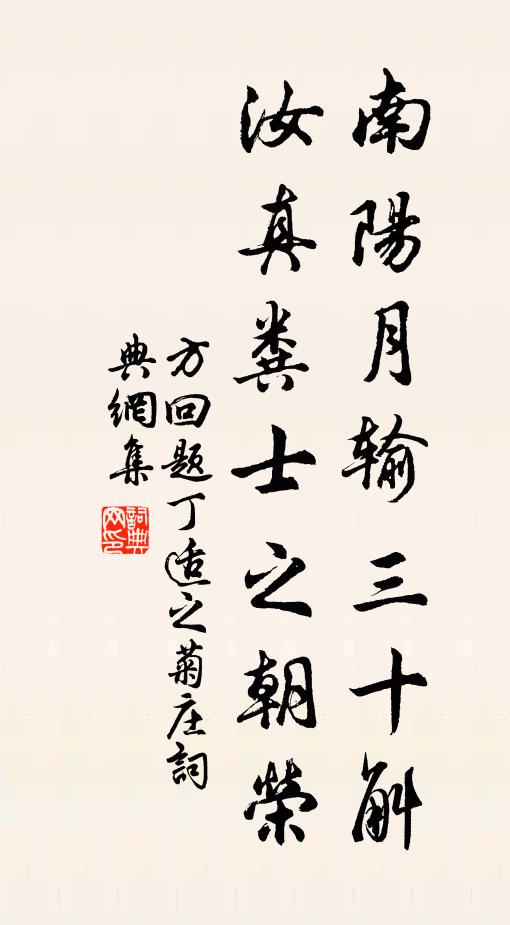 南陽月輸三十斛
汝真糞士之朝榮
方回題丁适之菊庄詞
典網集
詞典
网印